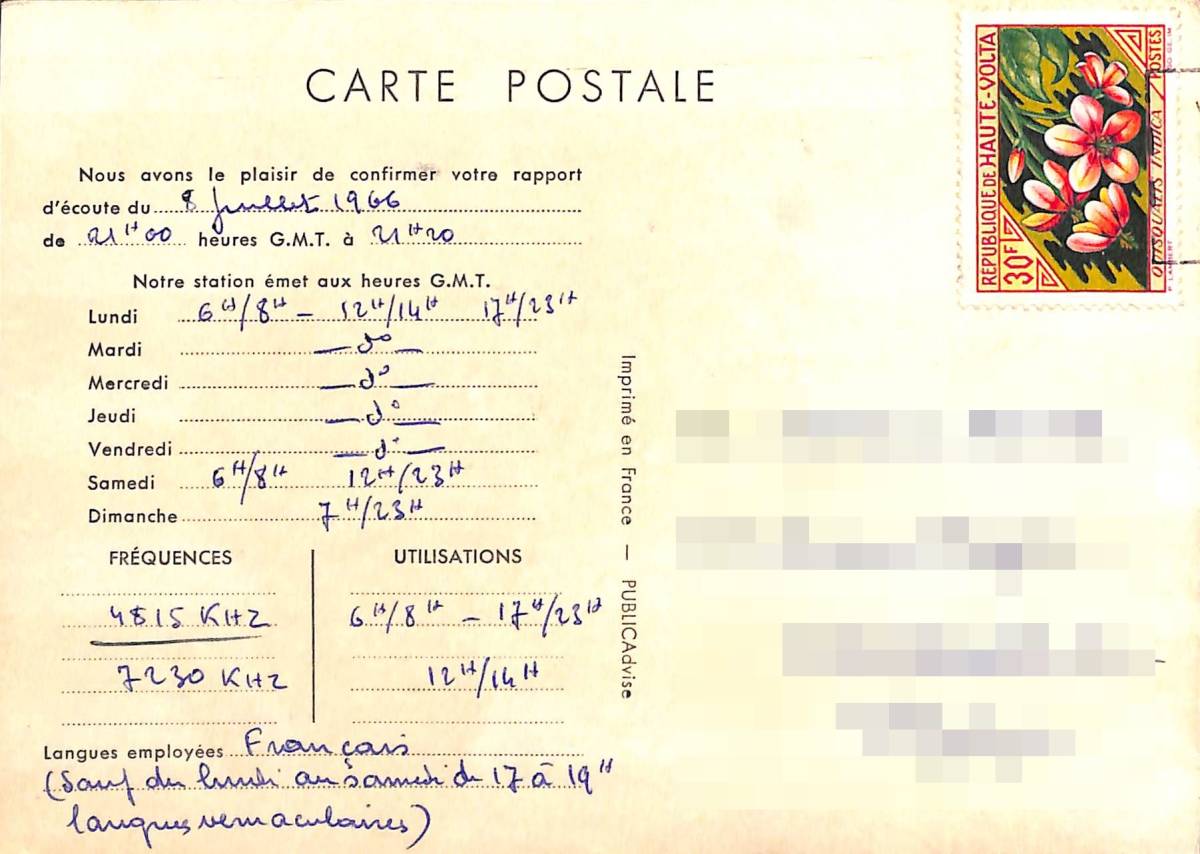 CARTE POSTALE
REPUBLIQUE DE HAUTE-VOLTA
30F
QUISQUALIS INDICA / POSTES
P. LAMBERT
Nous avons le plaisir de confirmer votre rapport
d'écoute du 8 Juillet 1966
de 21H00 heures G.M.T. à 21H20
Notre station émet aux heures G.M.T.
Lundi 6H/8H – 12H/14H 17H/23H
Mardi — d° —
Mercredi — d° —
Jeudi — d° —
Vendredi — d° —
Samedi 6H/8H 12H/23H
Dimanche 7H/23H
FRÉQUENCES UTILISATIONS
4815 KHZ 6H/8H – 17H/23H
7230 KHZ 12H/14H
Langues employées Français
(Sauf du lundi au samedi de 17 à 19H
langues vernaculaires)
Imprimé en France — PUBLICAdvise